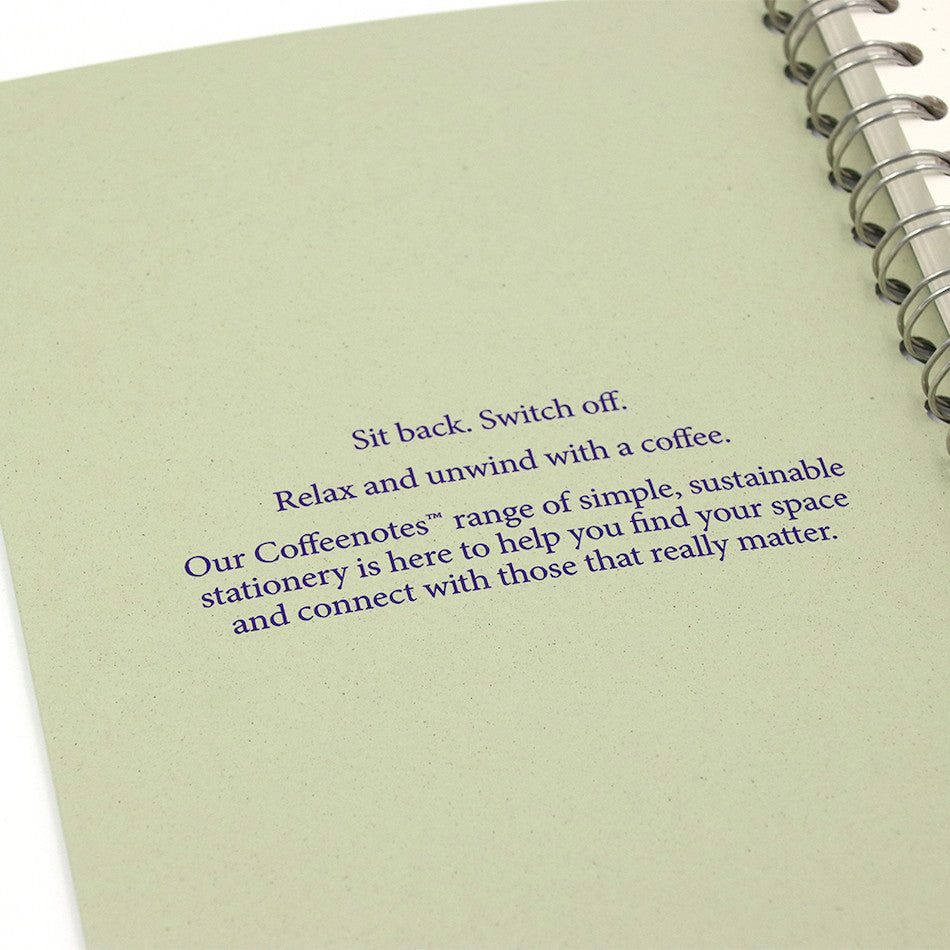 Sit back. Switch off.
Relax and unwind with a coffee.
Our Coffeenotes™ range of simple, sustainable
stationery is here to help you find your space
and connect with those that really matter.